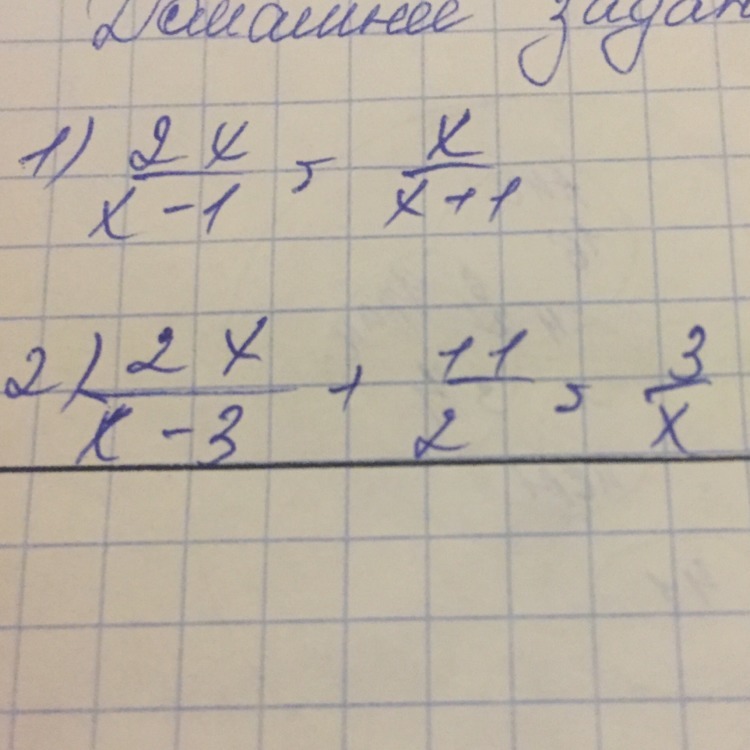 Домашнее задан
1) 2x/(x-1) = x/(x+1)
2) 2x/(x-3) + 11/2 = 3/x